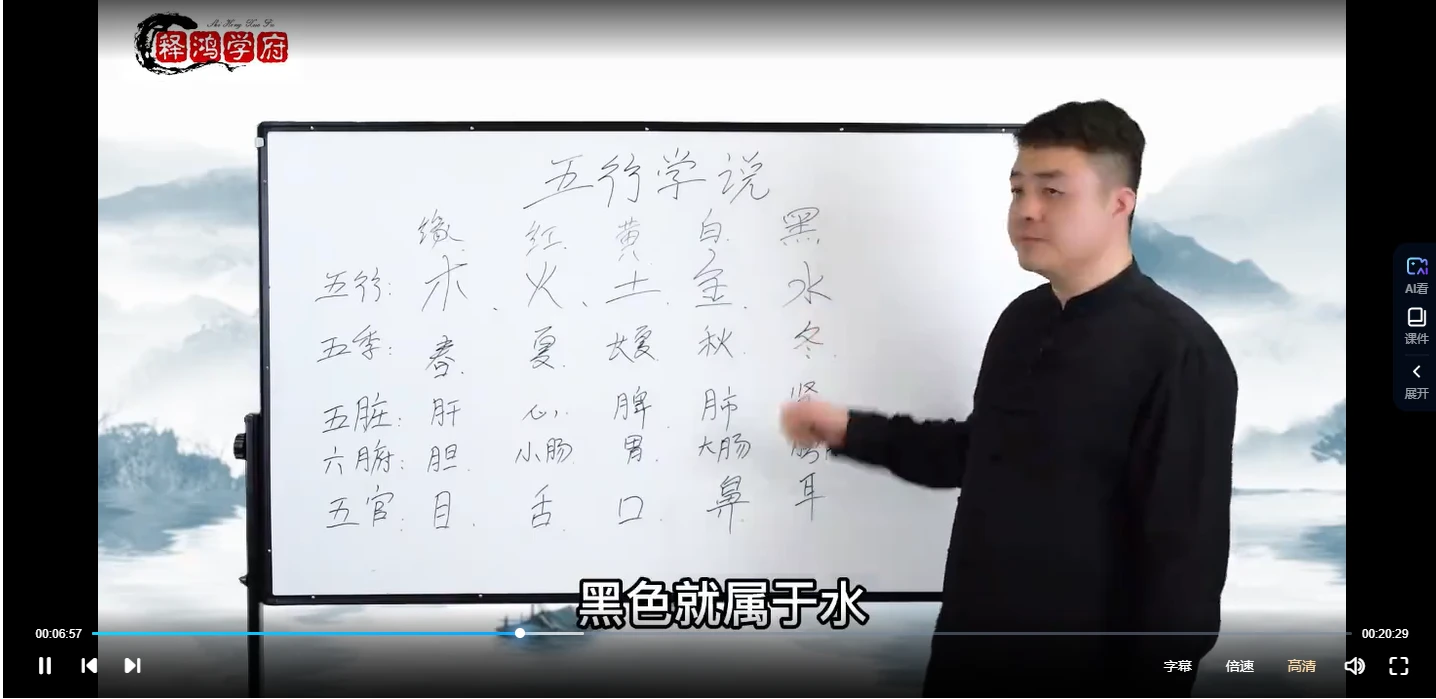 Shi Hong Xue Fu
释鸿学府
五行学说
缘 红 黄 白 黑
五行: 木、火、土、金、水
五季: 春 夏 长夏 秋 冬
五脏: 肝 心 脾 肺 肾
六腑: 胆 小肠 胃 大肠
五官: 目 舌 口 鼻 耳
黑色就属于水
00:06:57
00:20:29
字幕 倍速 高清
AI看
课件
展开